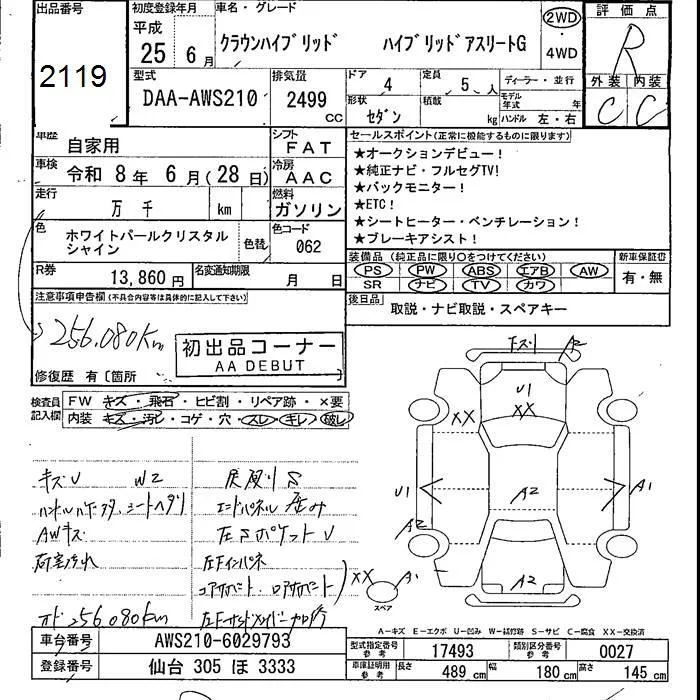 出品番号
2119
初度登録年月
平成
25年 6月
車名・グレード
クラウンハイブリッド ハイブリッドアスリートG
2WD
・
4WD
評価点
R
外装 内装
C C
型式
DAA-AWS210
排気量
2499
CC
ドア 4
定員 5 人
形状 セダン
積載 kg
ディーラー・並行
モデル年式 年
ハンドル 左・右
車歴
自家用
シフト
FAT
車検
令和 8年 6月(28日)
冷房
AAC
走行
万 千 km
燃料
ガソリン
色
ホワイトパールクリスタル
シャイン
色替
色コード
062
R券
13,860円
名変通知期限
月 日
セールスポイント(正常に機能するものに限ります)
★オークションデビュー!
★純正ナビ・フルセグTV!
★バックモニター!
★ETC!
★シートヒーター・ベンチレーション!
★ブレーキアシスト!
装備品 (純正品に限り○をつけてください)
PS PW ABS エアB AW
SR ナビ TV カワ
新車保証書
有・無
後日品
取説・ナビ取説・スペアキー
注意事項申告欄(不具合内容等は具体的に記入して下さい)
256,080km
初出品コーナー
AA DEBUT
修復歴 有〔箇所
検査員
記入欄
FW キズ・飛石・ヒビ割・リペア跡・×要
内装 キズ・汚レ・コゲ・穴・スレ・キレ・破レ
キズU W2
シートヘタリ
AWキズ
荷室汚れ
オド256,080km
エンドパネル
左Sポケット U
左Fインパネ
コアサポート・ロアサポート
A2
U1
XX
XX
U1
A2
A1
A2
A2
XX
A1
スペア
A-キズ E-エクボ U-凹み W-補修跡 S-サビ C-腐食 XX-交換済
車台番号
AWS210-6029793
登録番号
仙台 305 ほ 3333
型式指定番号
参考
17493
類別区分番号
参考
0027
車庫証明用
参考
長さ 489 cm 幅 180 cm 高さ 145 cm